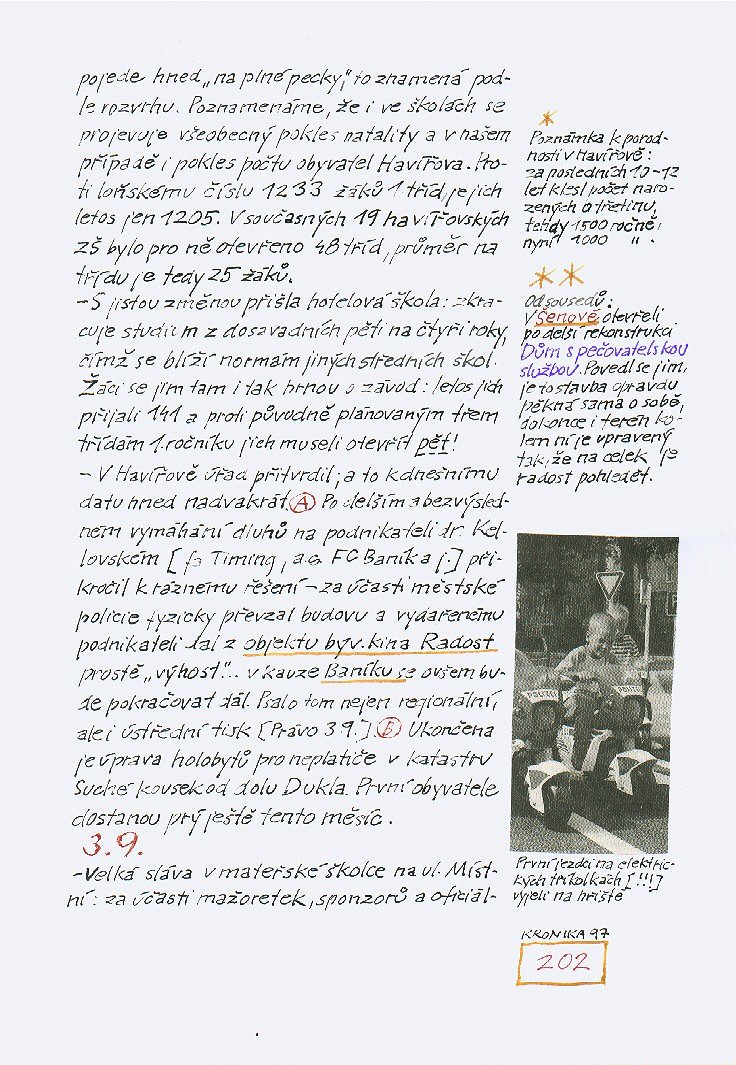 pojede hned „na plné pecky,“ to znamená pod-
le rozvrhu. Poznamenáme, že i ve školách se
projevuje všeobecný pokles natality a v našem
případě i pokles počtu obyvatel Havířova. Pro-
ti loňskému číslu 1233 žáků 1 tříd, je jich
letos jen 1205. V současných 19 havířovských
ZŠ bylo pro ně otevřeno 48 tříd, průměr na
třídu je tedy 25 žáků.
– S jistou změnou přišla hotelová škola: zkra-
cuje studium z dosavadních pěti na čtyři roky,
čímž se blíží normám jiných středních škol.
Žáci se jim tam i tak hrnou o závod: letos jich
přijali 141 a proti původně plánovaným třem
třídám 1. ročníku jich museli otevřít pět!
– V Havířově úřad přitvrdil; a to k dnešnímu
datu hned nadvakrát. A Po delším a bezvýsled-
ném vymáhání dluhů na podnikateli dr. Kel-
lovském [fa Timing, a.s. FC Baník aj.] při-
kročil k ráznému řešení – za účasti městské
policie fyzicky převzal budovu a vydařenému
podnikateli dal z objektu býv. kina Radost
prostě „výhost“... v kauze Baníku se ovšem bu-
de pokračovat dál. Psalo tom nejen regionální,
ale i ústřední tisk [Právo 3.9.] B Ukončena
je úprava holobytů pro neplatiče v katastru
Suché kousek od dolu Dukla. První obyvatele
dostanou prý ještě tento měsíc.
3.9.
– Velká sláva v mateřské školce na ul. Míst-
ní: za účasti mažoretek, sponzorů a oficiál-
*
Poznámka k porod-
nosti v Havířově:
za posledních 10–12
let klesl počet naro-
zených o třetinu,
tehdy 1500 ročně,
nyní 1000 „ .
* *
Od sousedů:
V Šenově otevřeli
po delší rekonstrukci
Dům s pečovatelskou
službou. Povedl se jim,
je to stavba opravdu
pěkná sama o sobě,
dokonce i terén ko-
lem ní je upravený
tak, že na celek je
radost pohledět.
POLIZEI
POLIZEI
První jezdci na elektric-
kých tříkolkách [!!!]
vyjeli na hřiště
KRONIKA 97
202